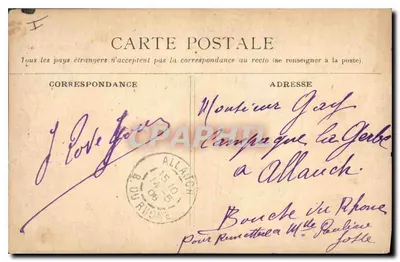 I
CARTE POSTALE
Tous les pays étrangers n'acceptent pas la correspondance au recto (se renseigner à la poste).
CORRESPONDANCE
ADRESSE
I love you
Monsieur Gay
Campagne la Gerbe
à Allauch
Bouche du Rhone
pour Remettre a Mlle Pauline
ALLAUCH
15 10
14 -5
06
B. DU RHONE
CPARAMA